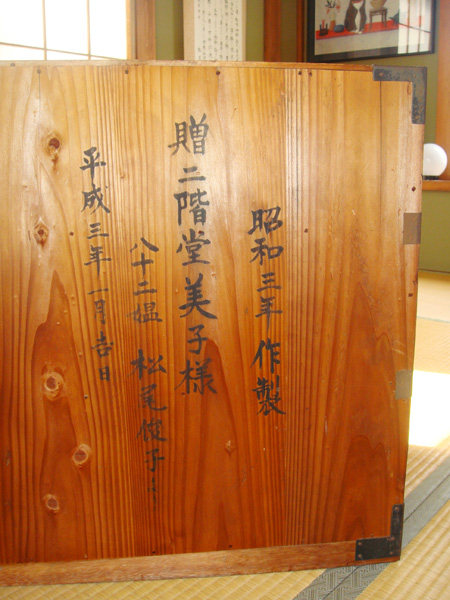 昭和三年作製
贈二階堂美子様
八十二媼 松尾俊子
平成三年一月吉日